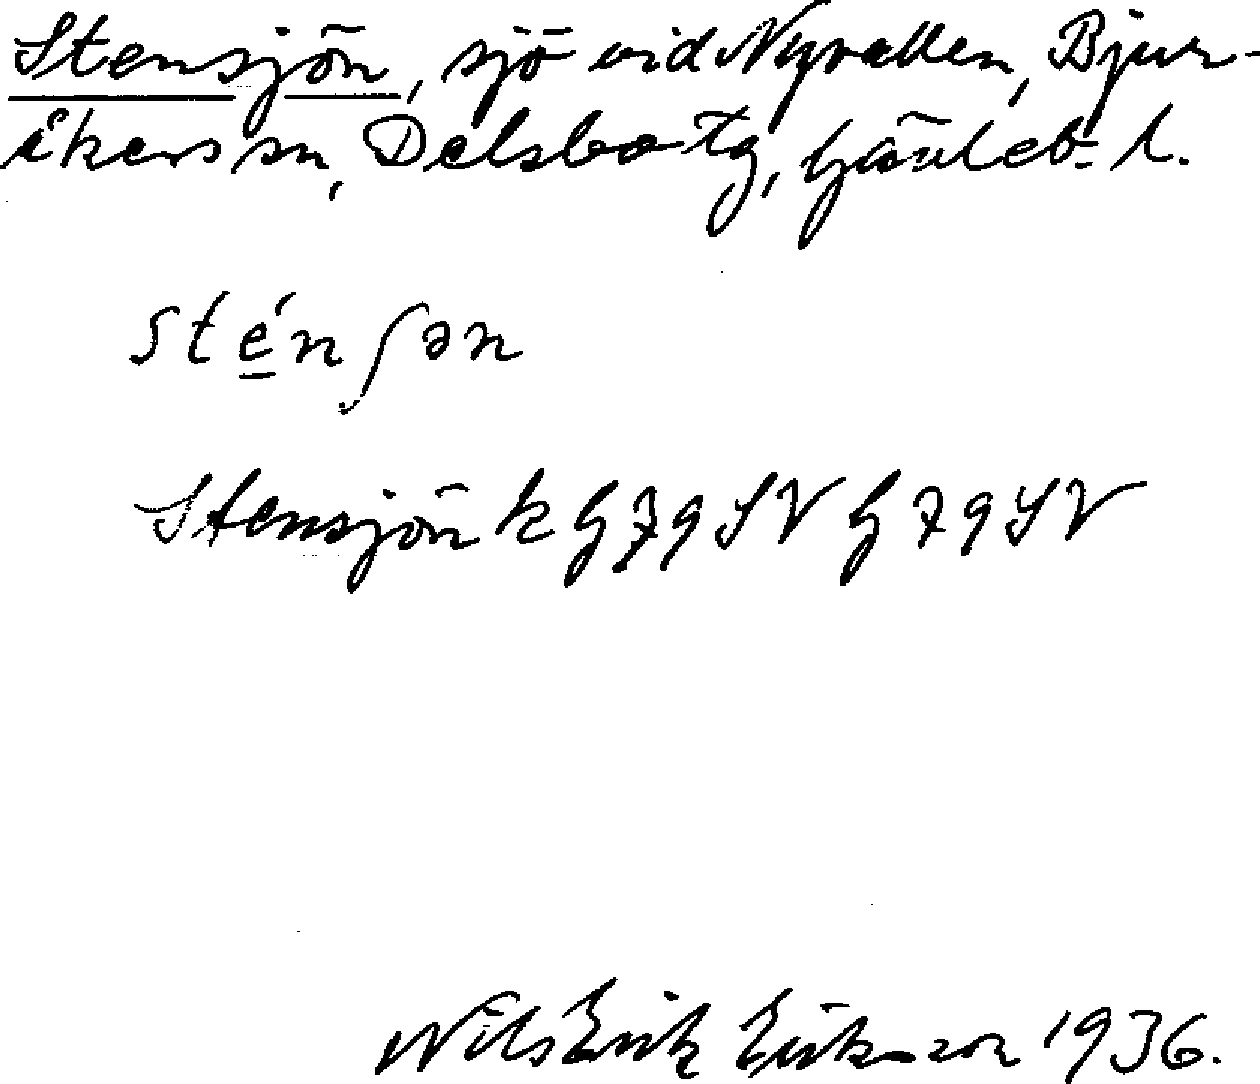 Stensjön, sjö vid Nyvallen, Bjur-
åkers sn, Delsbo tg, Gävleb. l.
sténʃən
Stensjön k G 79 SV G 79 SV
Nils Erik Eriksson 1936.